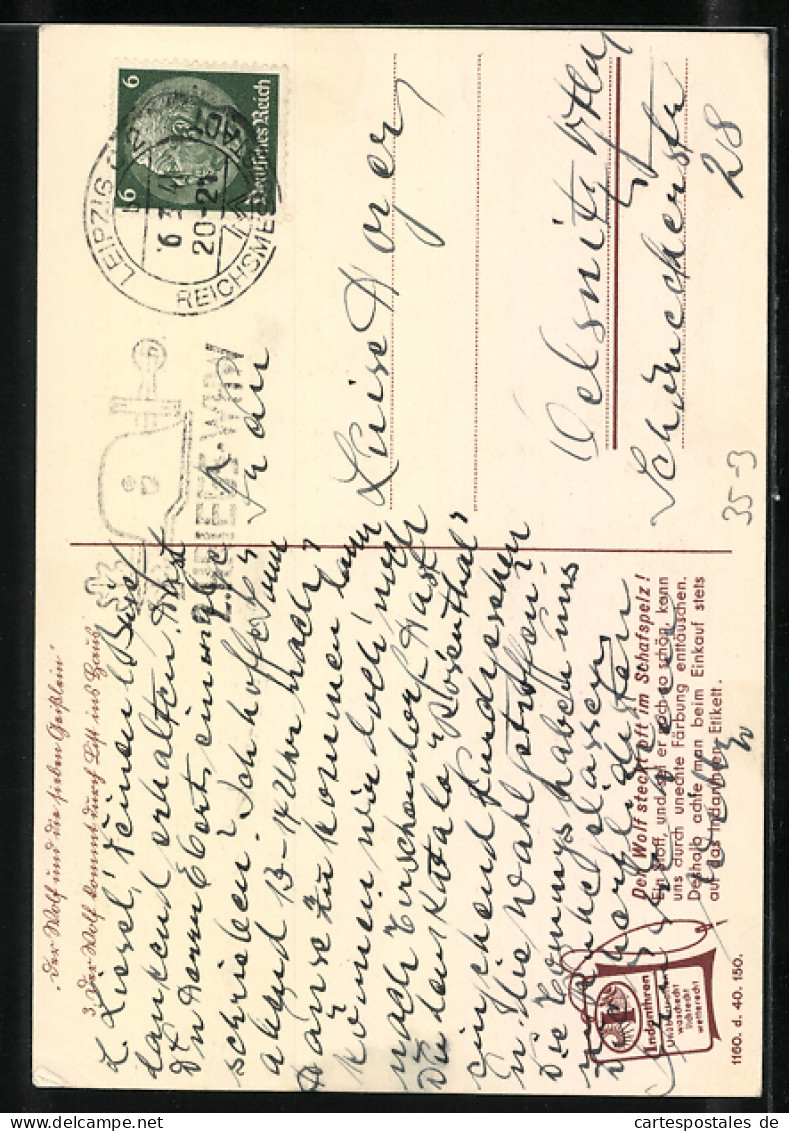 „Der Wolf und die sieben Geißlein“
3. Der Wolf kommt durch List ins Haus
L. Liesel! Deinen l. Brief
dankend erhalten. Hast
Du denn Eberts einmal ge-
schrieben? Ich hoffe Sonn
abend 13-14 Uhr nach
Hause zu kommen, dann
können wir doch noch
nach Hast
Du den Katalog „Rosenthal“
eingehend durchgesehen
u. die Wahl getroffen?
Die Tommys haben uns
in Ruhe gelassen.
Die herzlichsten
Grüße
Deutsches Reich
6
6
LEIPZIG C 2
16
6.3.41
20-21
REICHSMESSESTADT
KRIEGS-WHW
An
Luise Hoyer
Oelsnitz Vogtl.
Schmeckerstr
28
35-3
Der Wolf steckt oft im Schafspelz!
Ein Stoff, und sei er noch so schön, kann
uns durch unechte Färbung enttäuschen.
Deshalb achte man beim Einkauf stets
auf das Indanthren-Etikett.
Indanthren
Unübertroffen
waschecht
lichtecht
wetterecht
1160. d. 40. 150.
cartespostales de